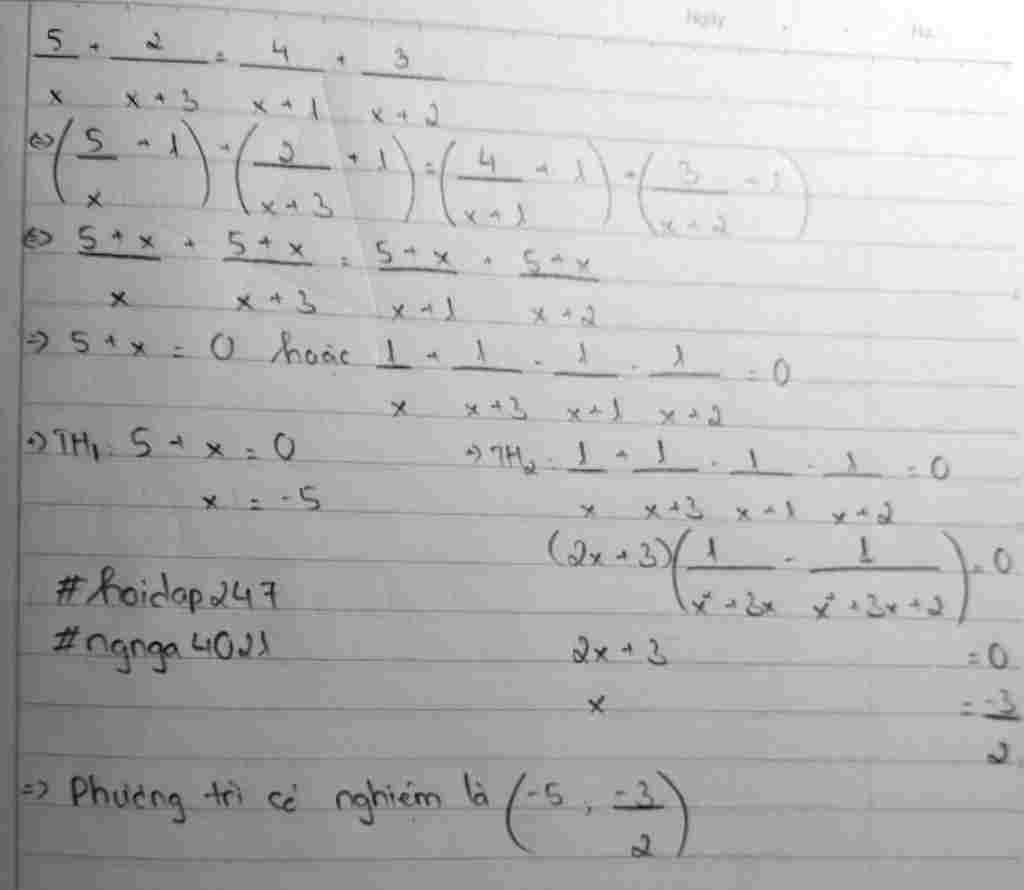 Ngày
5/x + 2/(x+3) = 4/(x+1) + 3/(x+2)
⇔ (5/x + 1) + (2/(x+3) + 1) = (4/(x+1) + 1) + (3/(x+2) + 1)
⇔ (5+x)/x + (5+x)/(x+3) = (5+x)/(x+1) + (5+x)/(x+2)
⇒ 5+x = 0 hoặc 1/x + 1/(x+3) - 1/(x+1) - 1/(x+2) = 0
⇒ TH₁: 5+x = 0 ⇒ TH₂: 1/x + 1/(x+3) - 1/(x+1) - 1/(x+2) = 0
x = -5
(2x+3)(1/(x²+3x) - 1/(x²+3x+2)) = 0
#hoidap247
#ngnga4021 2x+3 = 0
x = -3/2
⇒ Phương trì có nghiệm là (-5, -3/2)